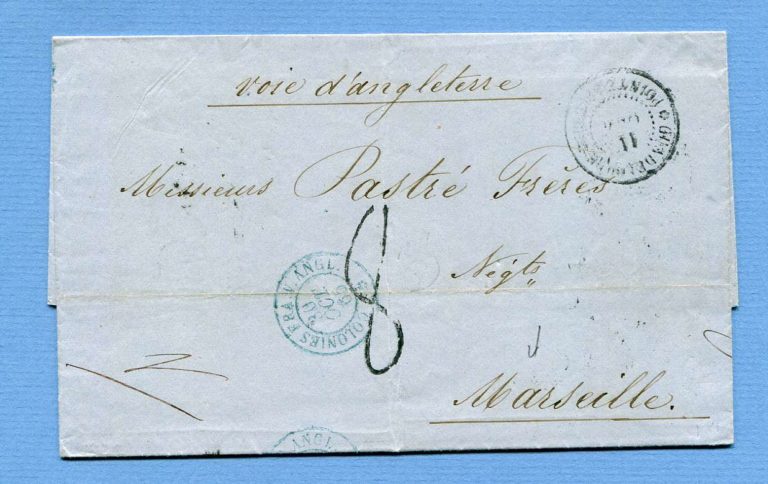 voie d'angleterre
Messieurs Pastré Frères
Négts
Marseille.
8
COLONIES FRA. V. ANGL.
ANGL.